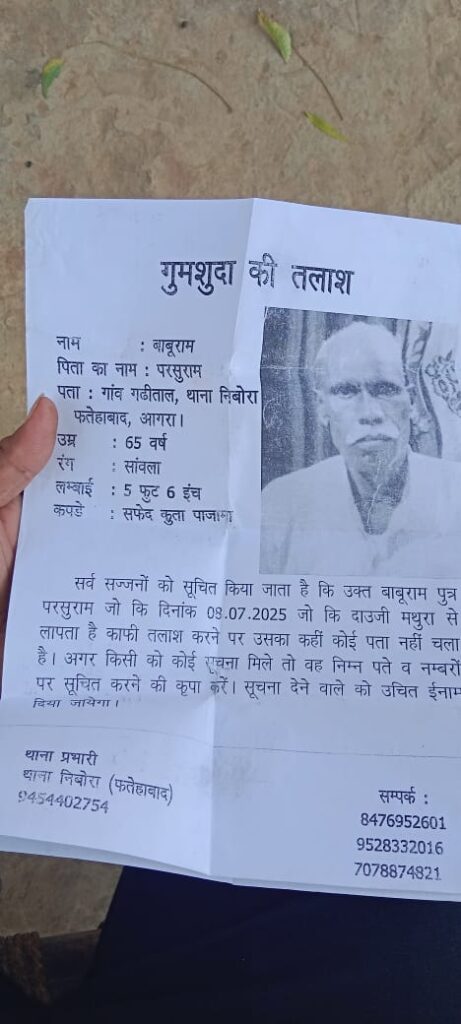 गुमशुदा की तलाश
नाम : बाबूराम
पिता का नाम : परसुराम
पता : गांव गढीताल, थाना निबोरा
फतेहाबाद, आगरा।
उम्र : 65 वर्ष
रंग : सांवला
लम्बाई : 5 फुट 6 इंच
कपडे : सफेद कुता पाजामा
सर्व सज्जनों को सूचित किया जाता है कि उक्त बाबूराम पुत्र
परसुराम जो कि दिनांक 08.07.2025 जो कि दाउजी मथुरा से
लापता है काफी तलाश करने पर उसका कहीं कोई पता नहीं चला
है। अगर किसी को कोई सूचना मिले तो वह निम्न पते व नम्बरों
पर सूचित करने की कृपा करें। सूचना देने वाले को उचित ईनाम
दिया जायेगा।
थाना प्रभारी
थाना निबोरा (फतेहाबाद)
9454402754
सम्पर्क :
8476952601
9528332016
7078874821